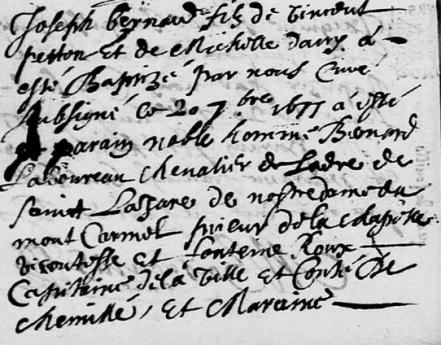 Joseph Bernard filz de Vincent
petton Et de Michelle daux a
esté Baptizé par nous Curé
subsigné le 20 7bre 1677 a esté
parain noble homme Bernard
Laboureau chevalier de Lodre de
sainct Lassare de nostre dame du
mont Carmel prieur de la chapelle
vicontesse et fonteine Roux
Capitaine de la Ville Et Conté de
chemillé, et Maraine